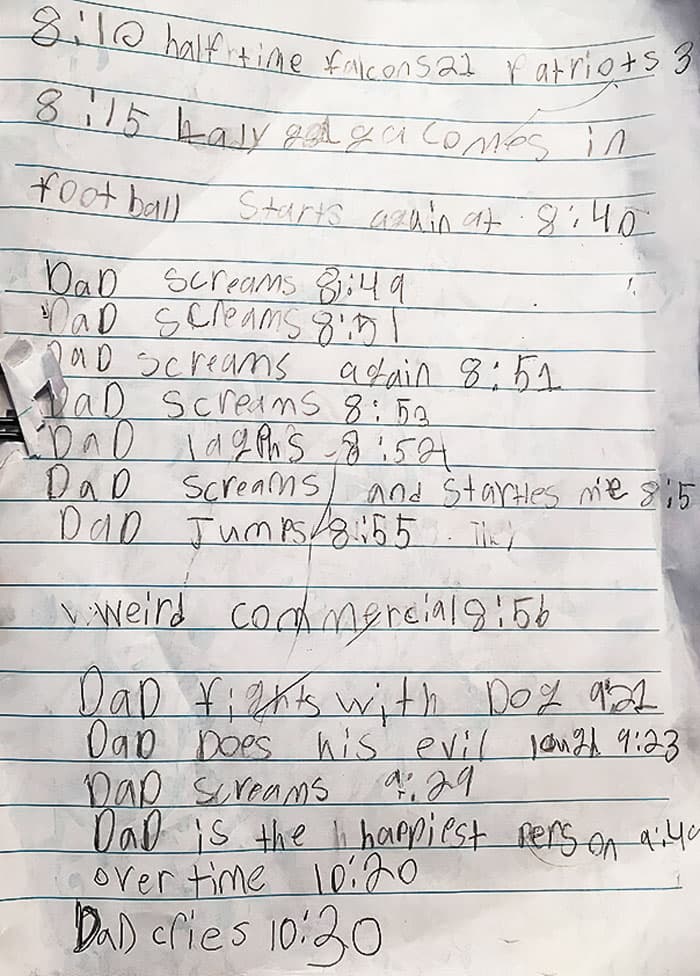 8:10 half time falcons 21 Patriots 3
8:15 Lady gaga comes in
football Starts again at 8:40
DaD screams 8:49
DaD screams 8:51
DaD screams again 8:51
DaD screams 8:53
DaD laghs 8:54
DaD screams and startles me 8:5
DaD Jumps 8:55
weird commercial 8:56
DaD fights with Dog 9:21
DaD Does his evil laugh 9:23
DaD screams 9:29
DaD is the happiest person 9:40
over time 10:20
DaD cries 10:30